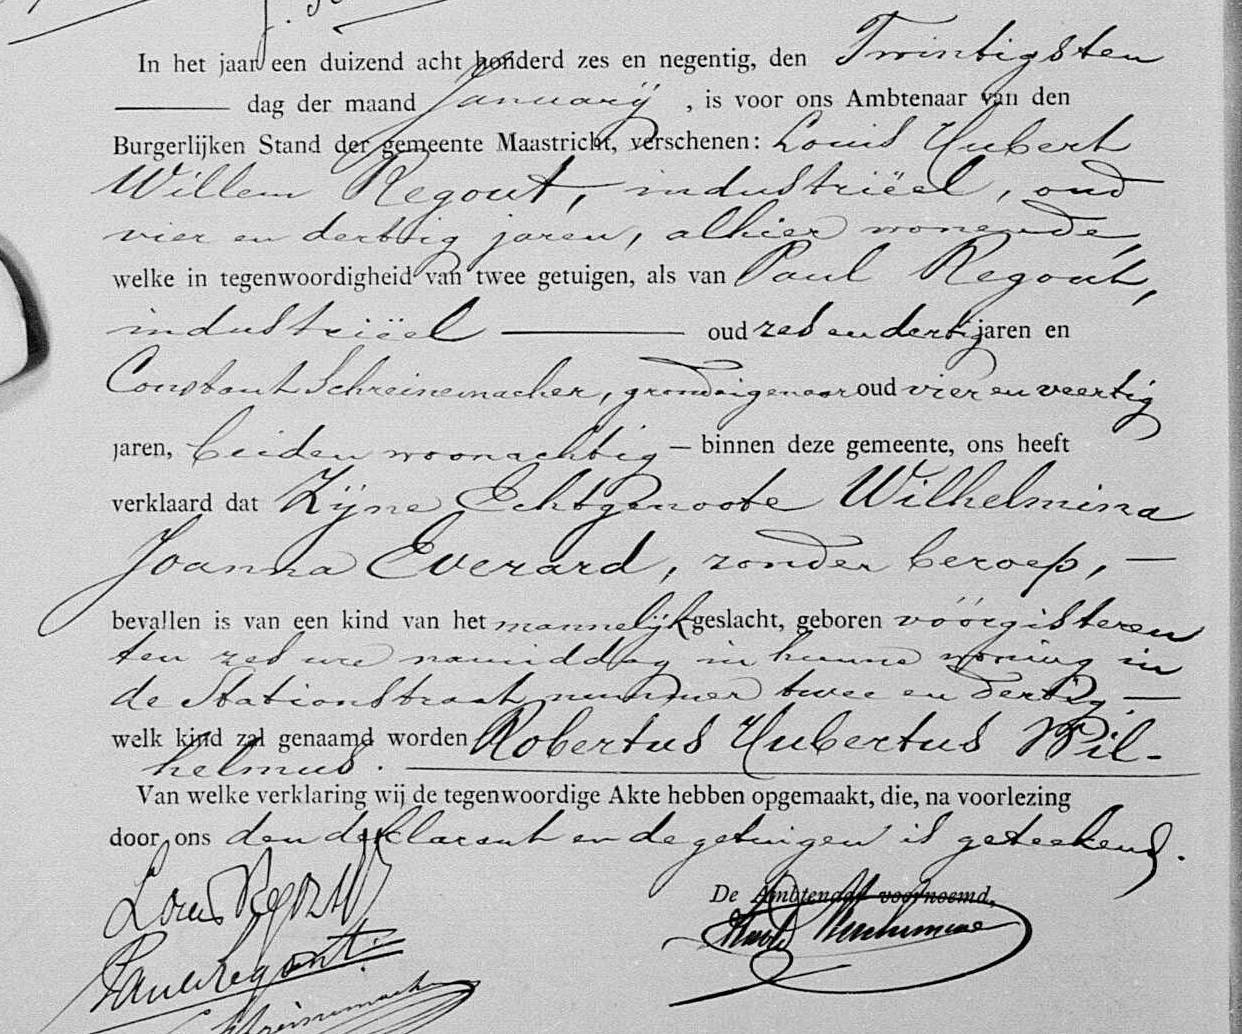 In het jaar een duizend acht honderd zes en negentig, den Twintigsten
dag der maand Januarij, is voor ons Ambtenaar van den
Burgerlijken Stand der gemeente Maastricht, verschenen: Louis Hubert
Willem Regout, industriëel, oud
vier en dertig jaren, alhier wonende,
welke in tegenwoordigheid van twee getuigen, als van Paul Regout,
industriëel oud zes en dertig jaren en
Constant Schreinemacher, grondeigenaar oud vier en veertig
jaren, beiden woonachtig — binnen deze gemeente, ons heeft
verklaard dat Zijne Echtgenoote Wilhelmina
Joanna Everard, zonder beroep, —
bevallen is van een kind van het mannelijk geslacht, geboren vóórgisteren
ten zes ure namiddag in hunne woning in
de Stationstraat nummer twee en dertig, —
welk kind zal genaamd worden Robertus Hubertus Wil-
helmus.
Van welke verklaring wij de tegenwoordige Akte hebben opgemaakt, die, na voorlezing
door ons den declarant en de getuigen is geteekend.
Louis Regout
De Ambtenaar voornoemd,
Paul Regout
Schreinemacher